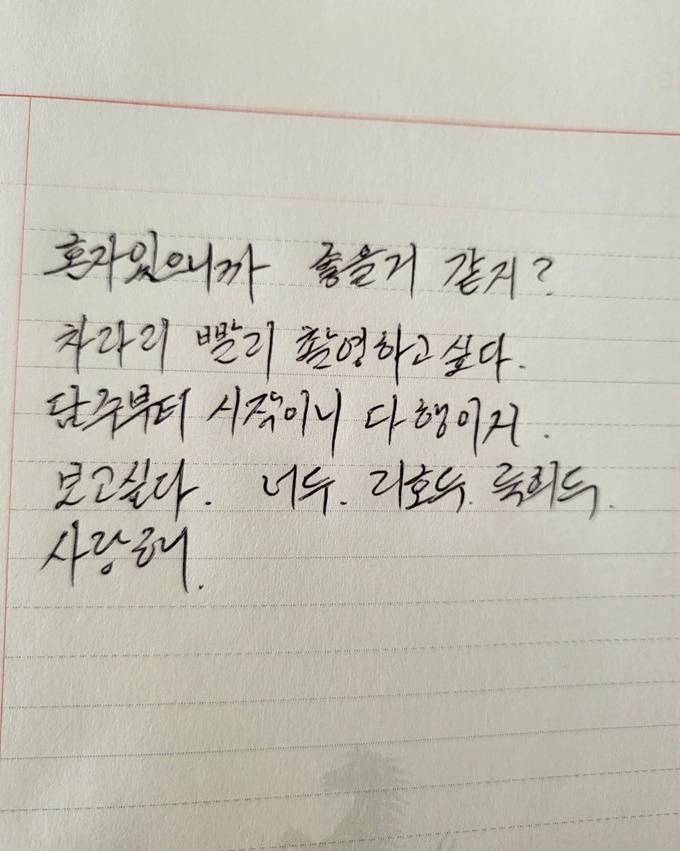 혼자있으니까 좋을거 같지?
차라리 빨리 촬영하고싶다.
담주부터 시작이니 다행이지.
보고싶다. 너두. 리호두. 룩희두.
사랑해.